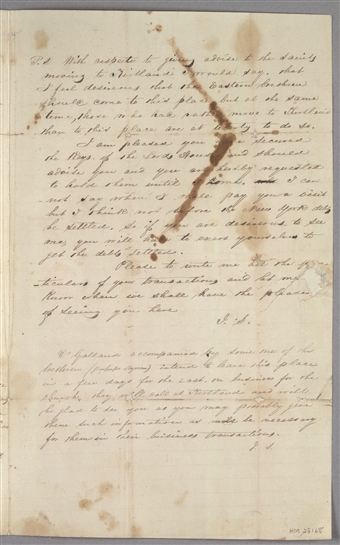 P.S With respect to giving advise to the Saints
moving to Kirtland I would say, that
I feel desireous that the Eastern brethren
should come to this place, but at the same
time, those who had move to Kirtland
than to this place are at to do so.
I am pleased you secured
the Keys of the Lords House and should
advise you and you are hereby requested
to hold them until I can
not say when I shall pay you a visit
but I think not before the New York debts
be settled, So if you are desireous to see
me, you will have to exert yourselves to
get the debts settled.
Please to write me all the
ticulars of your transactions and let me
know when we shall have the pleasure
of seeing you here
J. S.
Dr Galland accompanied by some one of the
brethren intend to leave this place
in a few days for the east, on business for the
church, they will call at Kirtland and will
be glad to see you as you may probably give
them such information as will be necessary
for them in their business transactions.
J. S.
HM 28168